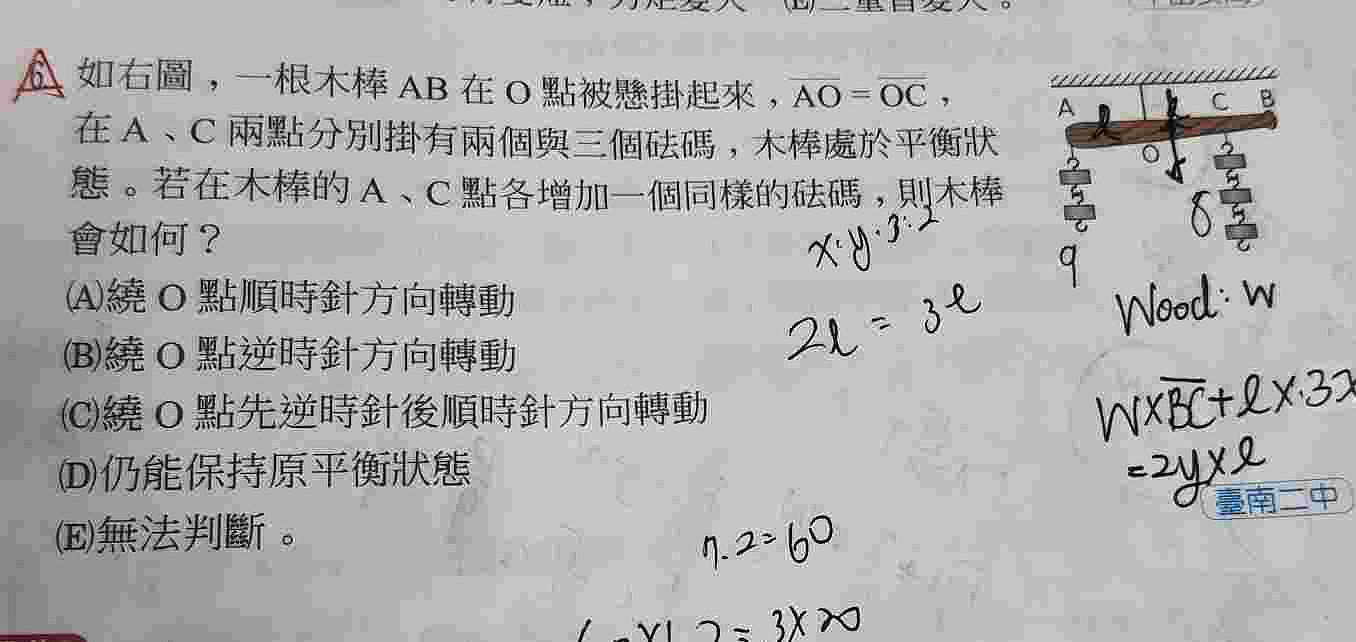 6 如右圖，一根木棒 AB 在 O 點被懸掛起來，AO = OC，
在 A、C 兩點分別掛有兩個與三個砝碼，木棒處於平衡狀
態。若在木棒的 A、C 點各增加一個同樣的砝碼，則木棒
會如何？
(A)繞 O 點順時針方向轉動
(B)繞 O 點逆時針方向轉動
(C)繞 O 點先逆時針後順時針方向轉動
(D)仍能保持原平衡狀態
(E)無法判斷。
A C B
l
O
9 8
x:y:3:2
2l = 3l
Wood: W
W×BC+l×.3x
=2y×l
臺南二中
7.2=60
3×20